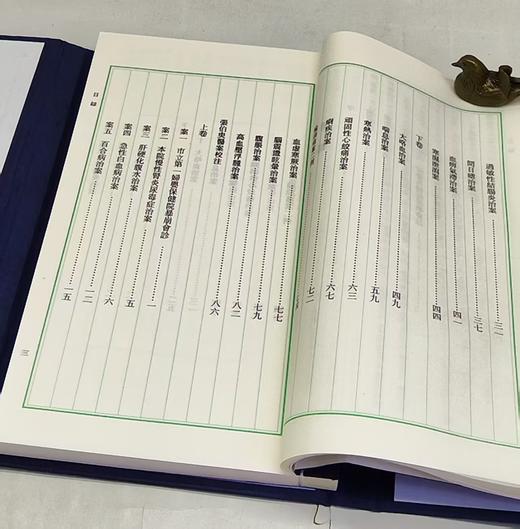 過敏性結腸炎治案……三一
治案……三七
治案……四一
下卷
大咯血治案……四九
喘息治案……五九
寒熱治案……六三
頑固性心絞痛治案……六七
疾治案……七二
血虛寒厥治案……七七
腦震盪眩暈治案……七九
腹脹治案……八二
高血壓浮腫治案……八六
張伯臾醫案校注
上卷
案一 市立第一婦嬰保健院暴崩會診……一
案二 本院慢性腎炎尿毒症治案……五
案三 肝硬化腹水治案……六
案四 急性白血病治案……一二
案五 百合病治案……一五
目錄
三